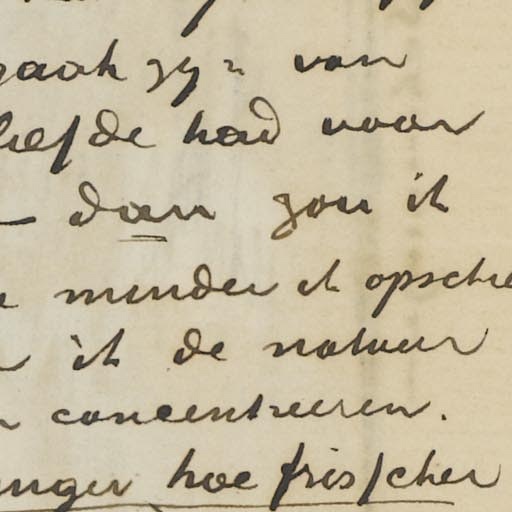 zyn van
liefde had voor
— dan zou ik
minder ik opschie
ik de natuur
concentreeren.
langer hoe frisscher